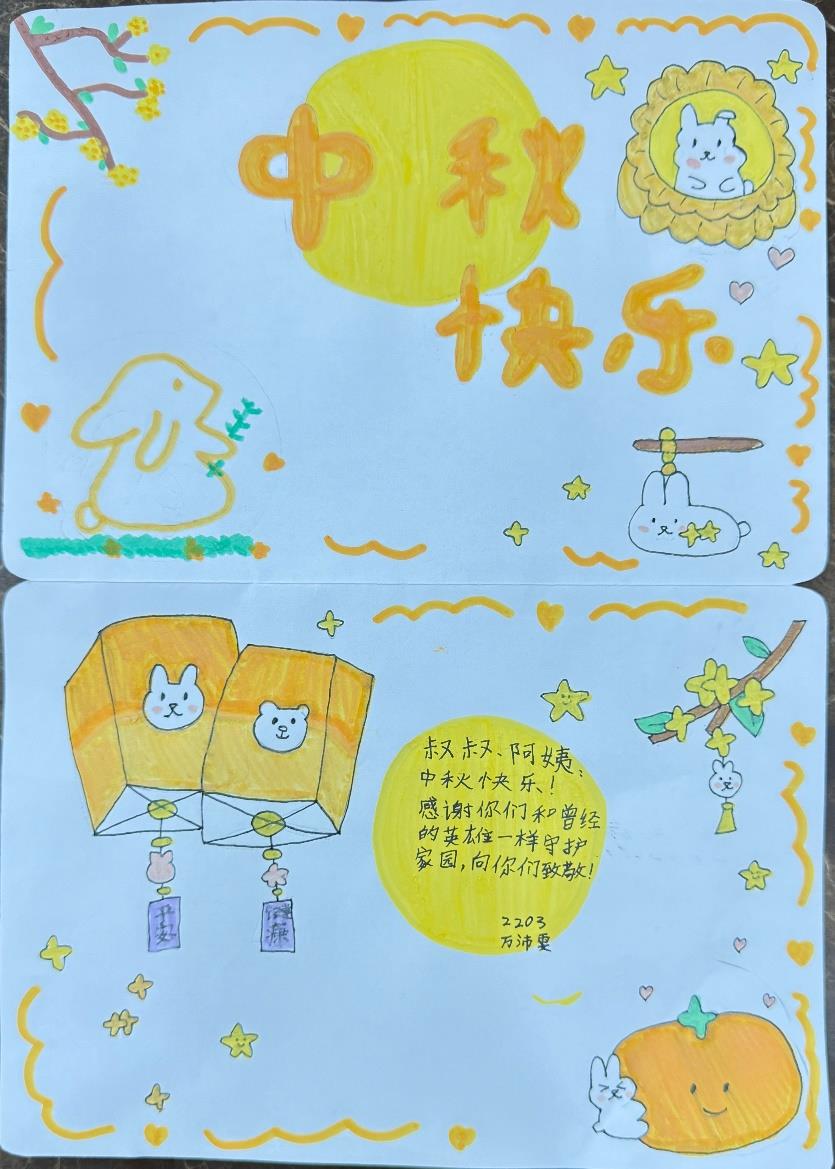 中秋
快乐
平安
健康
叔叔、阿姨：
中秋快乐！
感谢你们和曾经
的英雄一样守护
家园，向你们致敬！
2203
万沛雯